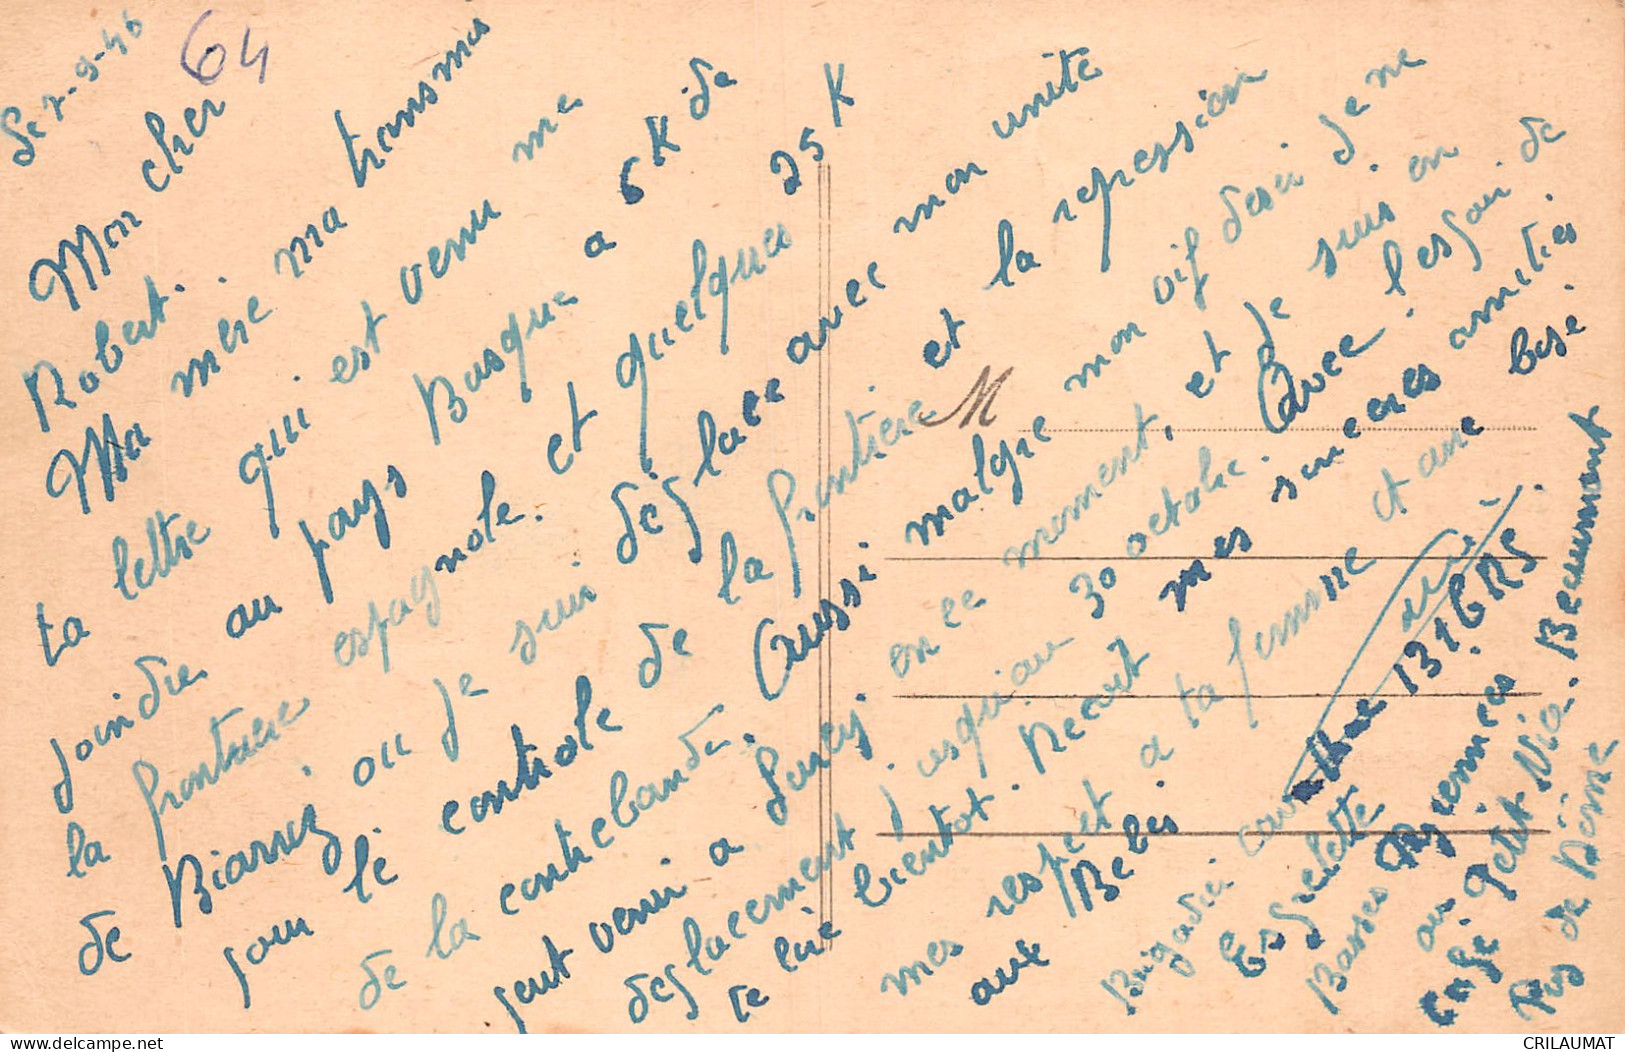 Le 7-9-46
64
Mon cher
Robert.
Ma mère ma transmis
ta lettre qui est venu me
joindre au pays Basque a 6 K de
la frontiere espagnole. et quelques 25 K
de Biarriz ou je suis déplacer avec mon unité
pour le controle de la frontiere et la repession
de la contrebande. Aussi malgre mon vif desir je ne
peut venir a en ce moment, et je suis en
deplacement jusqu'au 30 octobre. Avec l'espoir de
te lire bientot. Recoit mes sinceres amitiés
mes respect a ta femme et une bise
aux Bebes
M
Brigadier
131 CRS
Espelette
Basses Pyrennees
ou Petit Nice. Beaumont
Puy de Dôme
CRILAUMAT